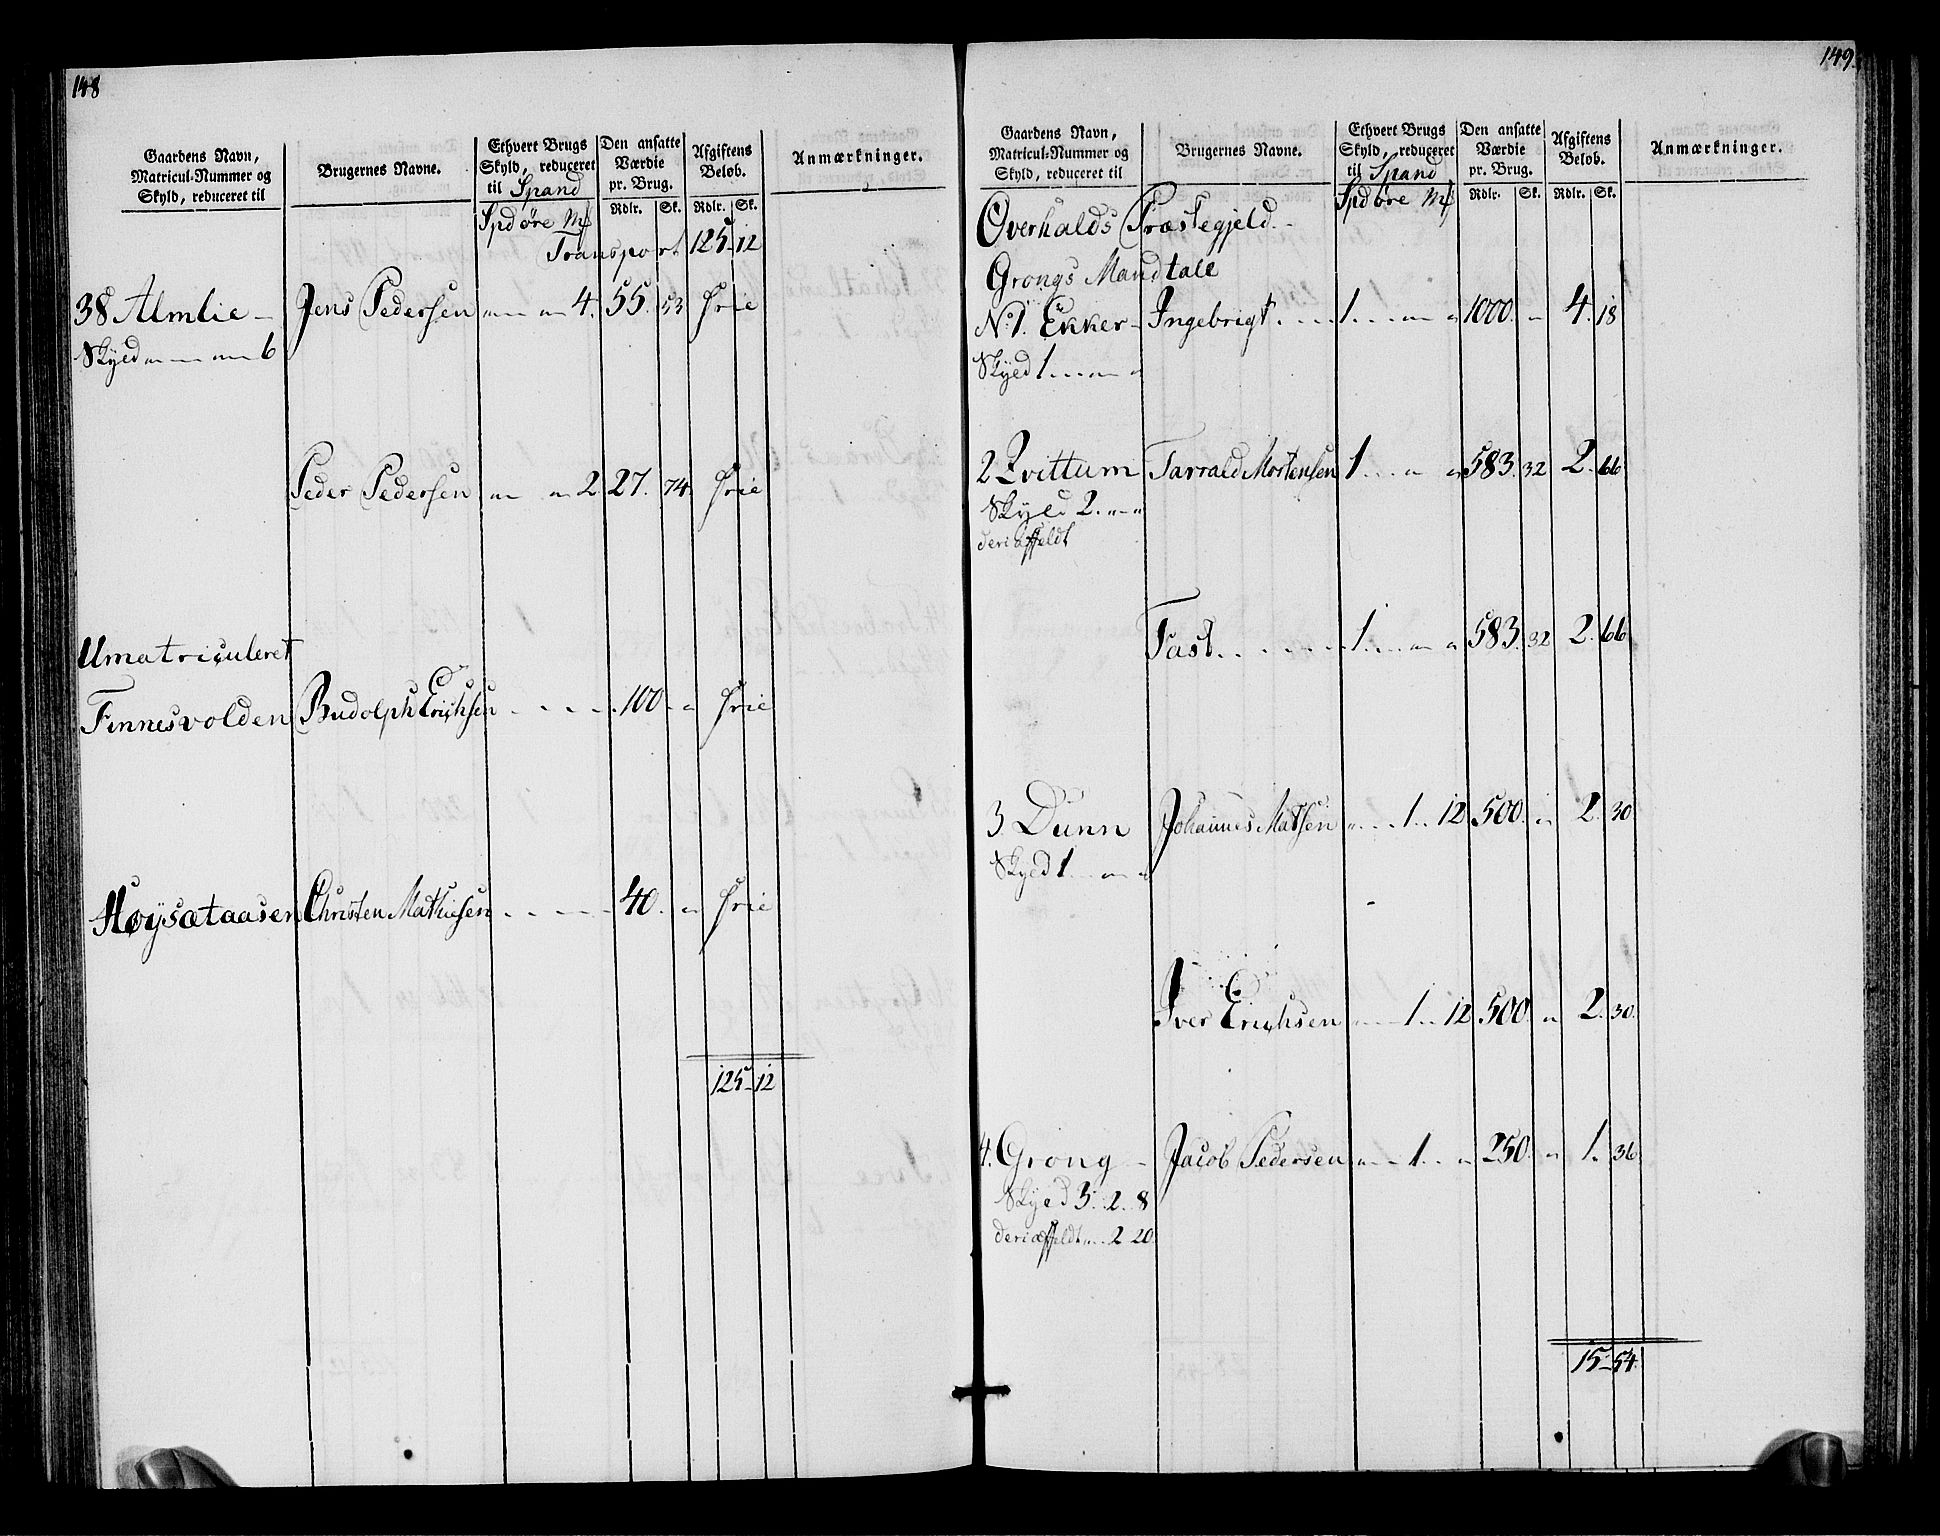 148
Gaardens Navn, Matricul-Nummer og Skyld, reduceret til
Brugernes Navne.
Ethvert Brugs Skyld, reduceret til Spand
Den ansatte Værdie pr. Brug.
Afgiftens Beløb.
Anmærkninger.
Spd øre Mk Rdlr. Sk. Rdlr. Sk.
Transport 125 - 12
38 Almlie - Jens Pedersen " " 4. 55. 53 Frie
Skyld " " 6
Peder Pedersen " " 2 27. 74. Frie
Umatriculeret
Finnesvolden Rudolph Erichsen . . . . 100 - " Frie
Høysætaasen Christen Mathiesen - - - - 40. " Frie
125 - 12
149.
Gaardens Navn, Matricul-Nummer og Skyld, reduceret til
Brugernes Navne.
Ethvert Brugs Skyld, reduceret til Spand
Den ansatte Værdie pr. Brug.
Afgiftens Beløb.
Anmærkninger.
Spd øre Mk Rdlr. Sk. Rdlr. Sk.
Overhalds Præstegjeld. -
Grongs Mandtale
No. 1. Ekker - Ingebrigt . . . . 1 . . . " " 1000. " 4. 18
Skyld 1 . . . " "
2 Qvittum Tarrald Mortensen 1 . . . " " 583. 32 2. 66
Skyld 2. " - "
deri øffeldt
Fast . . . . . . 1 . . . " " 583. 32 2. 66
3 Dunn Johannes Matsen " . . . 1 . . 12 500. " 2. 30
Skyld 1 . . . " "
Iver Erichsen " - - 1 . . 12 500. " 2. 30.
4. Grong - Jacob Pedersen " - - 1 . . " 250. " 1. 36
Skyld 3. 2. 8
deri øffeldt " . 2 20.
15 - 54.